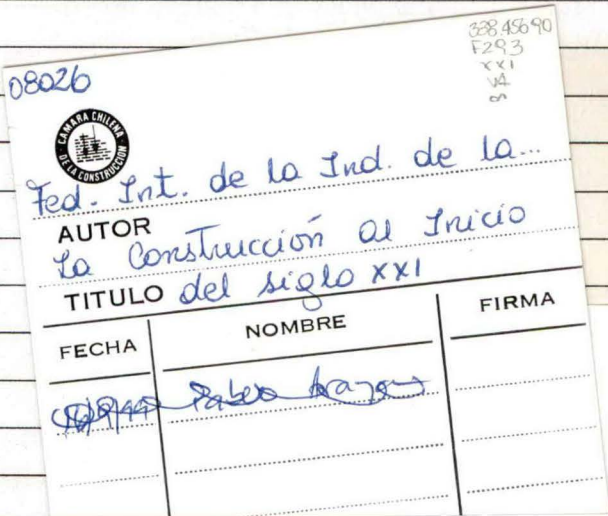 338.45690
F293
XXI
V.1
08026
CAMARA CHILENA
DE LA CONSTRUCCION
Fed. Int. de la Ind. de la...
AUTOR
La Construcción al Inicio
TITULO del siglo XXI
FECHA NOMBRE FIRMA